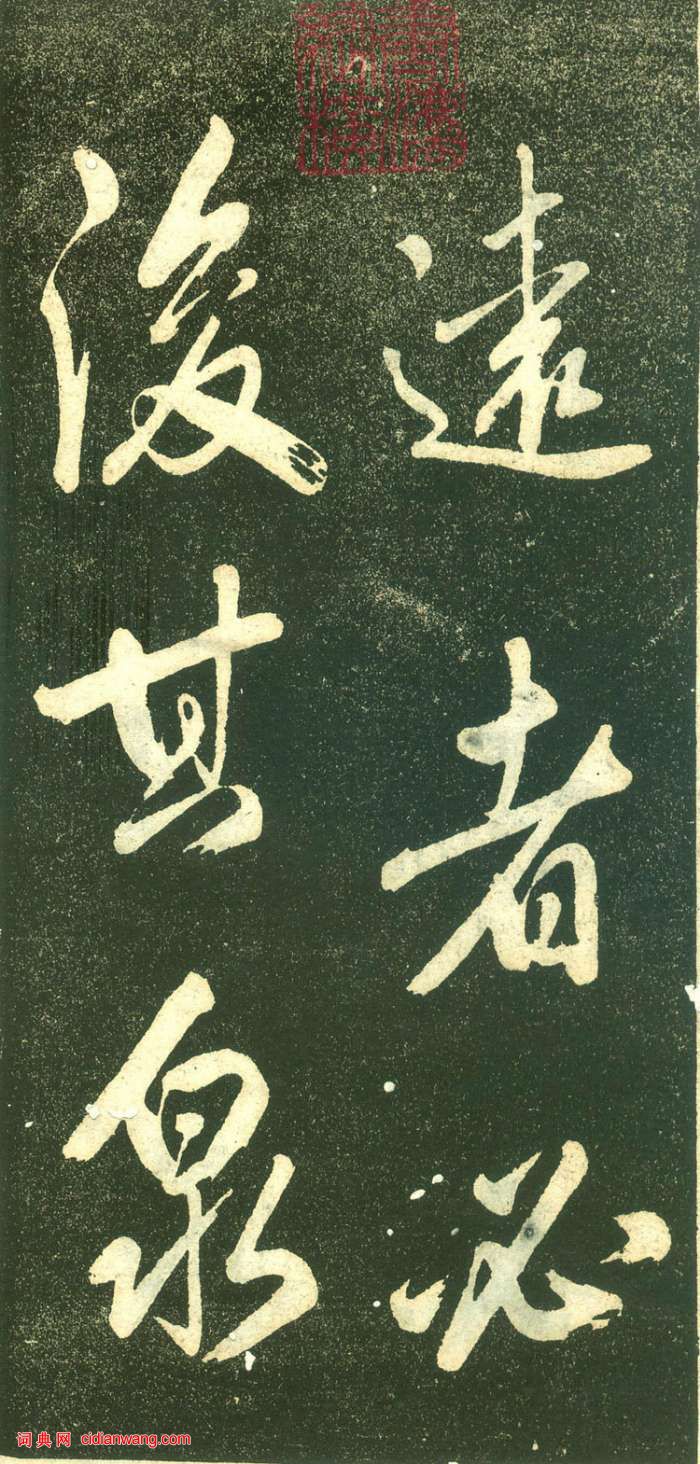 遠者必
浚其泉
词典网 cidianwang.com